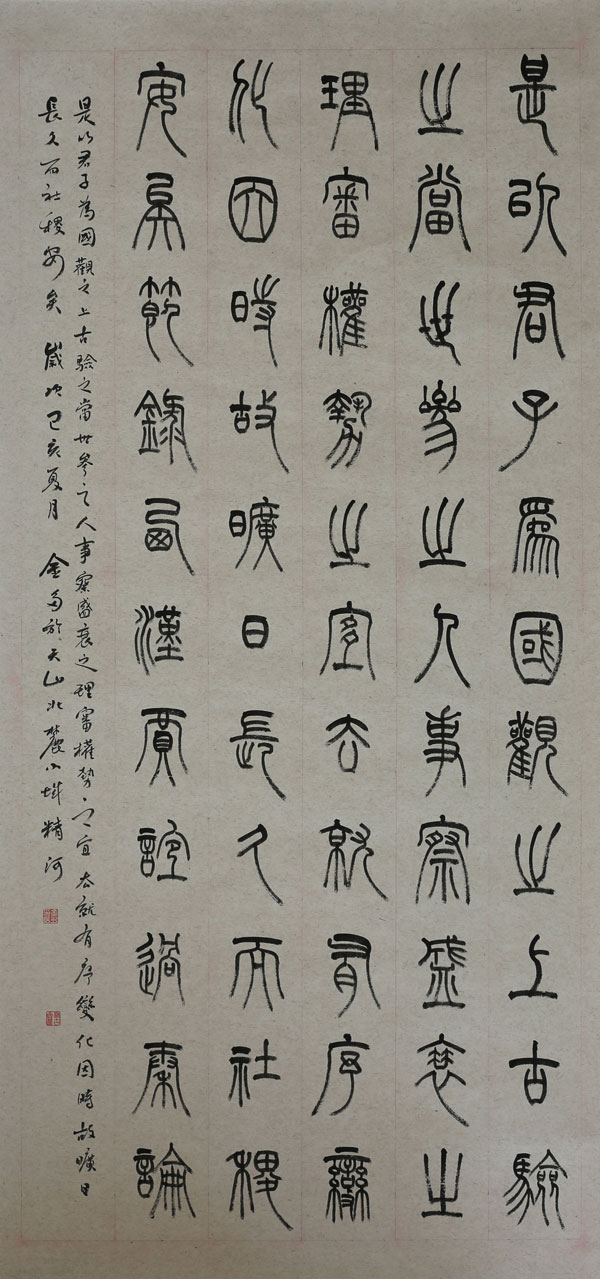 是以君子為國觀之上古驗
之當世參之人事察盛衰之
理審權勢之宜去就有序變
化因時故曠日長久而社稷
安矣節錄西漢賈誼過秦論
是以君子為國觀之上古驗之當世參之人事察盛衰之理審權勢之宜去就有序變化因時故曠日
長久而社稷安矣 歲次己亥夏月 金 於天山北麓小城精河